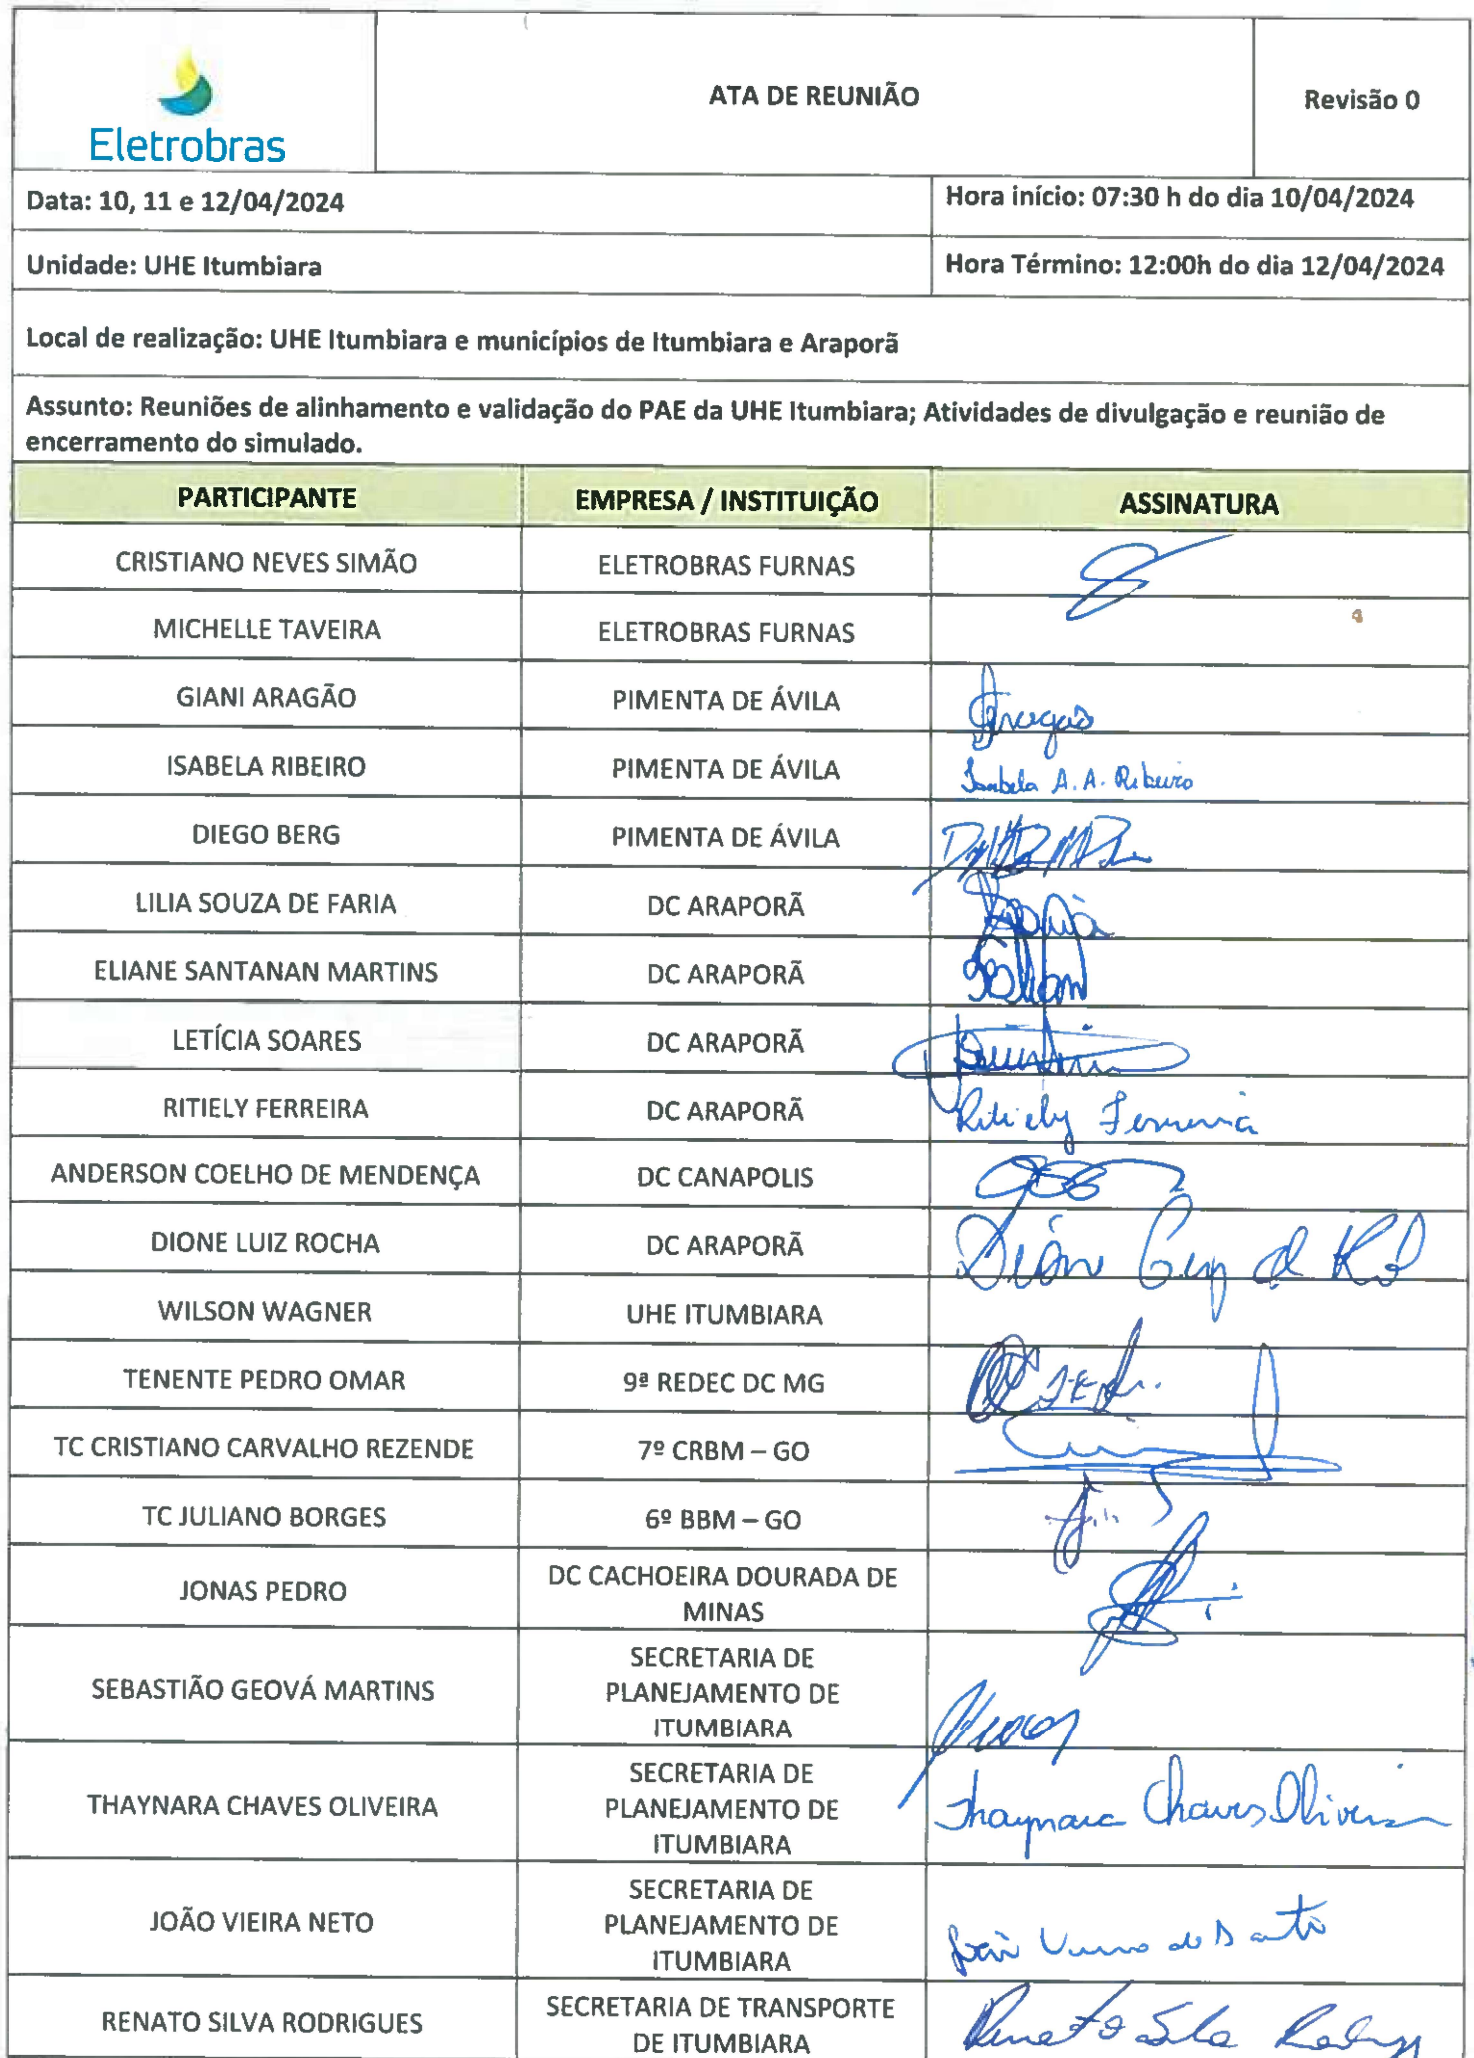 Eletrobras
ATA DE REUNIÃO
Revisão 0
Data: 10, 11 e 12/04/2024
Hora início: 07:30 h do dia 10/04/2024
Unidade: UHE Itumbiara
Hora Término: 12:00h do dia 12/04/2024
Local de realização: UHE Itumbiara e municípios de Itumbiara e Araporã
Assunto: Reuniões de alinhamento e validação do PAE da UHE Itumbiara; Atividades de divulgação e reunião de
encerramento do simulado.
PARTICIPANTE EMPRESA / INSTITUIÇÃO ASSINATURA
CRISTIANO NEVES SIMÃO ELETROBRAS FURNAS
MICHELLE TAVEIRA ELETROBRAS FURNAS
GIANI ARAGÃO PIMENTA DE ÁVILA
ISABELA RIBEIRO PIMENTA DE ÁVILA Isabela A. A. Ribeiro
DIEGO BERG PIMENTA DE ÁVILA
LILIA SOUZA DE FARIA DC ARAPORÃ
ELIANE SANTANAN MARTINS DC ARAPORÃ
LETÍCIA SOARES DC ARAPORÃ
RITIELY FERREIRA DC ARAPORÃ Ritiely Ferreira
ANDERSON COELHO DE MENDENÇA DC CANAPOLIS
DIONE LUIZ ROCHA DC ARAPORÃ
WILSON WAGNER UHE ITUMBIARA
TENENTE PEDRO OMAR 9ª REDEC DC MG
TC CRISTIANO CARVALHO REZENDE 7º CRBM – GO
TC JULIANO BORGES 6º BBM – GO
JONAS PEDRO
DC CACHOEIRA DOURADA DE
MINAS
SEBASTIÃO GEOVÁ MARTINS
SECRETARIA DE
PLANEJAMENTO DE
ITUMBIARA
THAYNARA CHAVES OLIVEIRA
SECRETARIA DE
PLANEJAMENTO DE
ITUMBIARA
Thaynara Chaves Oliveira
JOÃO VIEIRA NETO
SECRETARIA DE
PLANEJAMENTO DE
ITUMBIARA
RENATO SILVA RODRIGUES
SECRETARIA DE TRANSPORTE
DE ITUMBIARA
Renato Silva